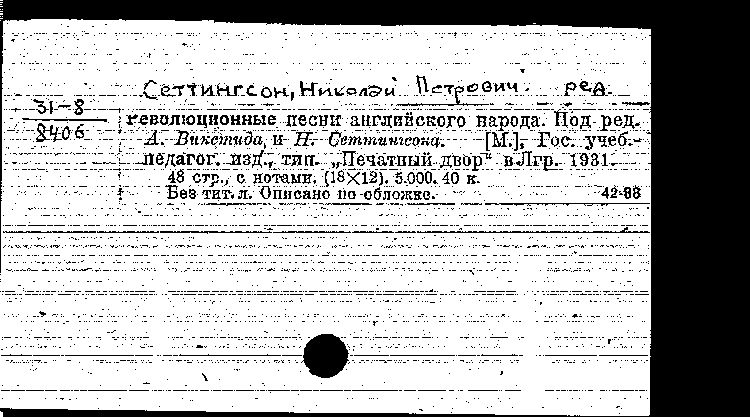 Сеттингсон, Николай Петрович. ред.
31-8
8406
революционные песни английского народа. Под ред.
А. Викстида и Н. Сеттингсона. [М.], Гос. учеб.-
педагог. изд., тип. „Печатный двор“ в Лгр. 1931.
48 стр., с нотами. (18×12). 5.000. 40 к.
Без тит. л. Описано по обложке. 42-88